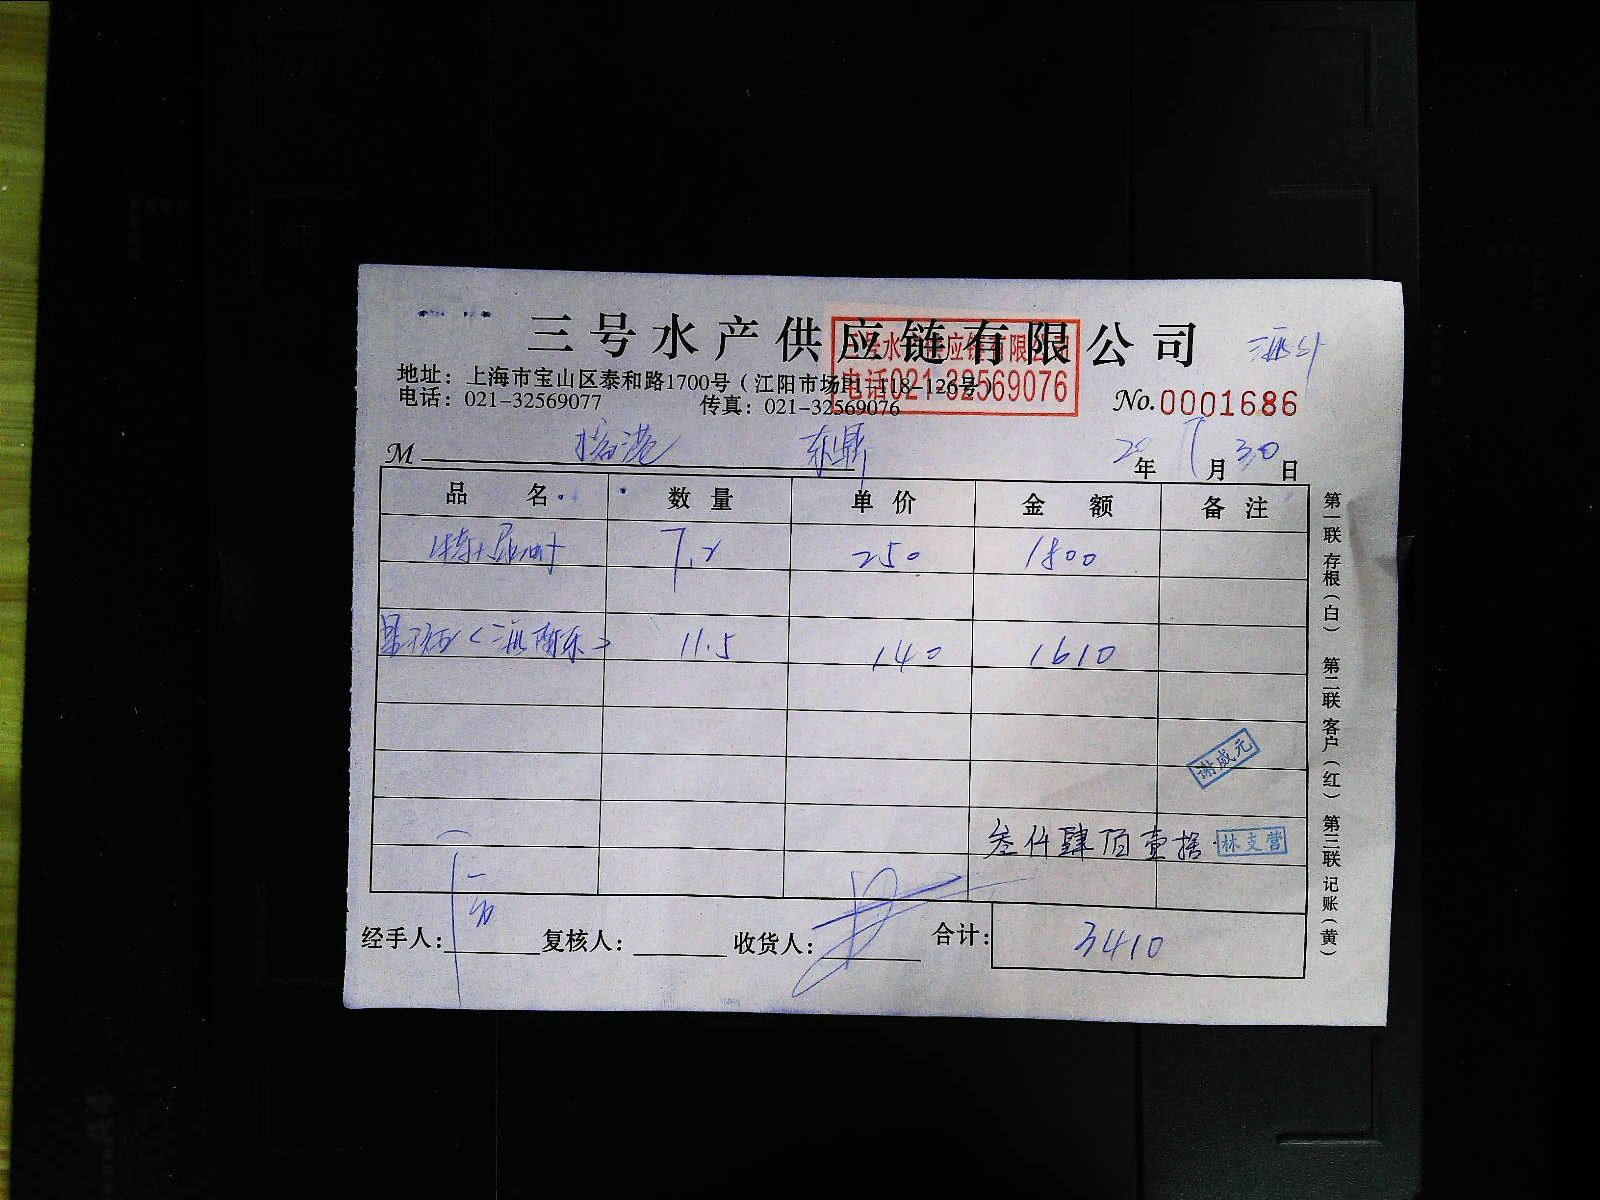 三号水产供应链有限公司
三号水产供应链有限公司
电话021-32569076
地址：上海市宝山区泰和路1700号（江阳市场P1-118-126号）
电话：021-32569077 传真：021-32569076
No.0001686
M 临港 东鼎 20年 月30日
品名 数量 单价 金额 备注
7.2 250 1800
11.5 140 1610
谢成元
叁仟肆佰壹拾
林支营
经手人： 复核人： 收货人： 合计： 3410
第一联 存根（白） 第二联 客户（红） 第三联 记账（黄）